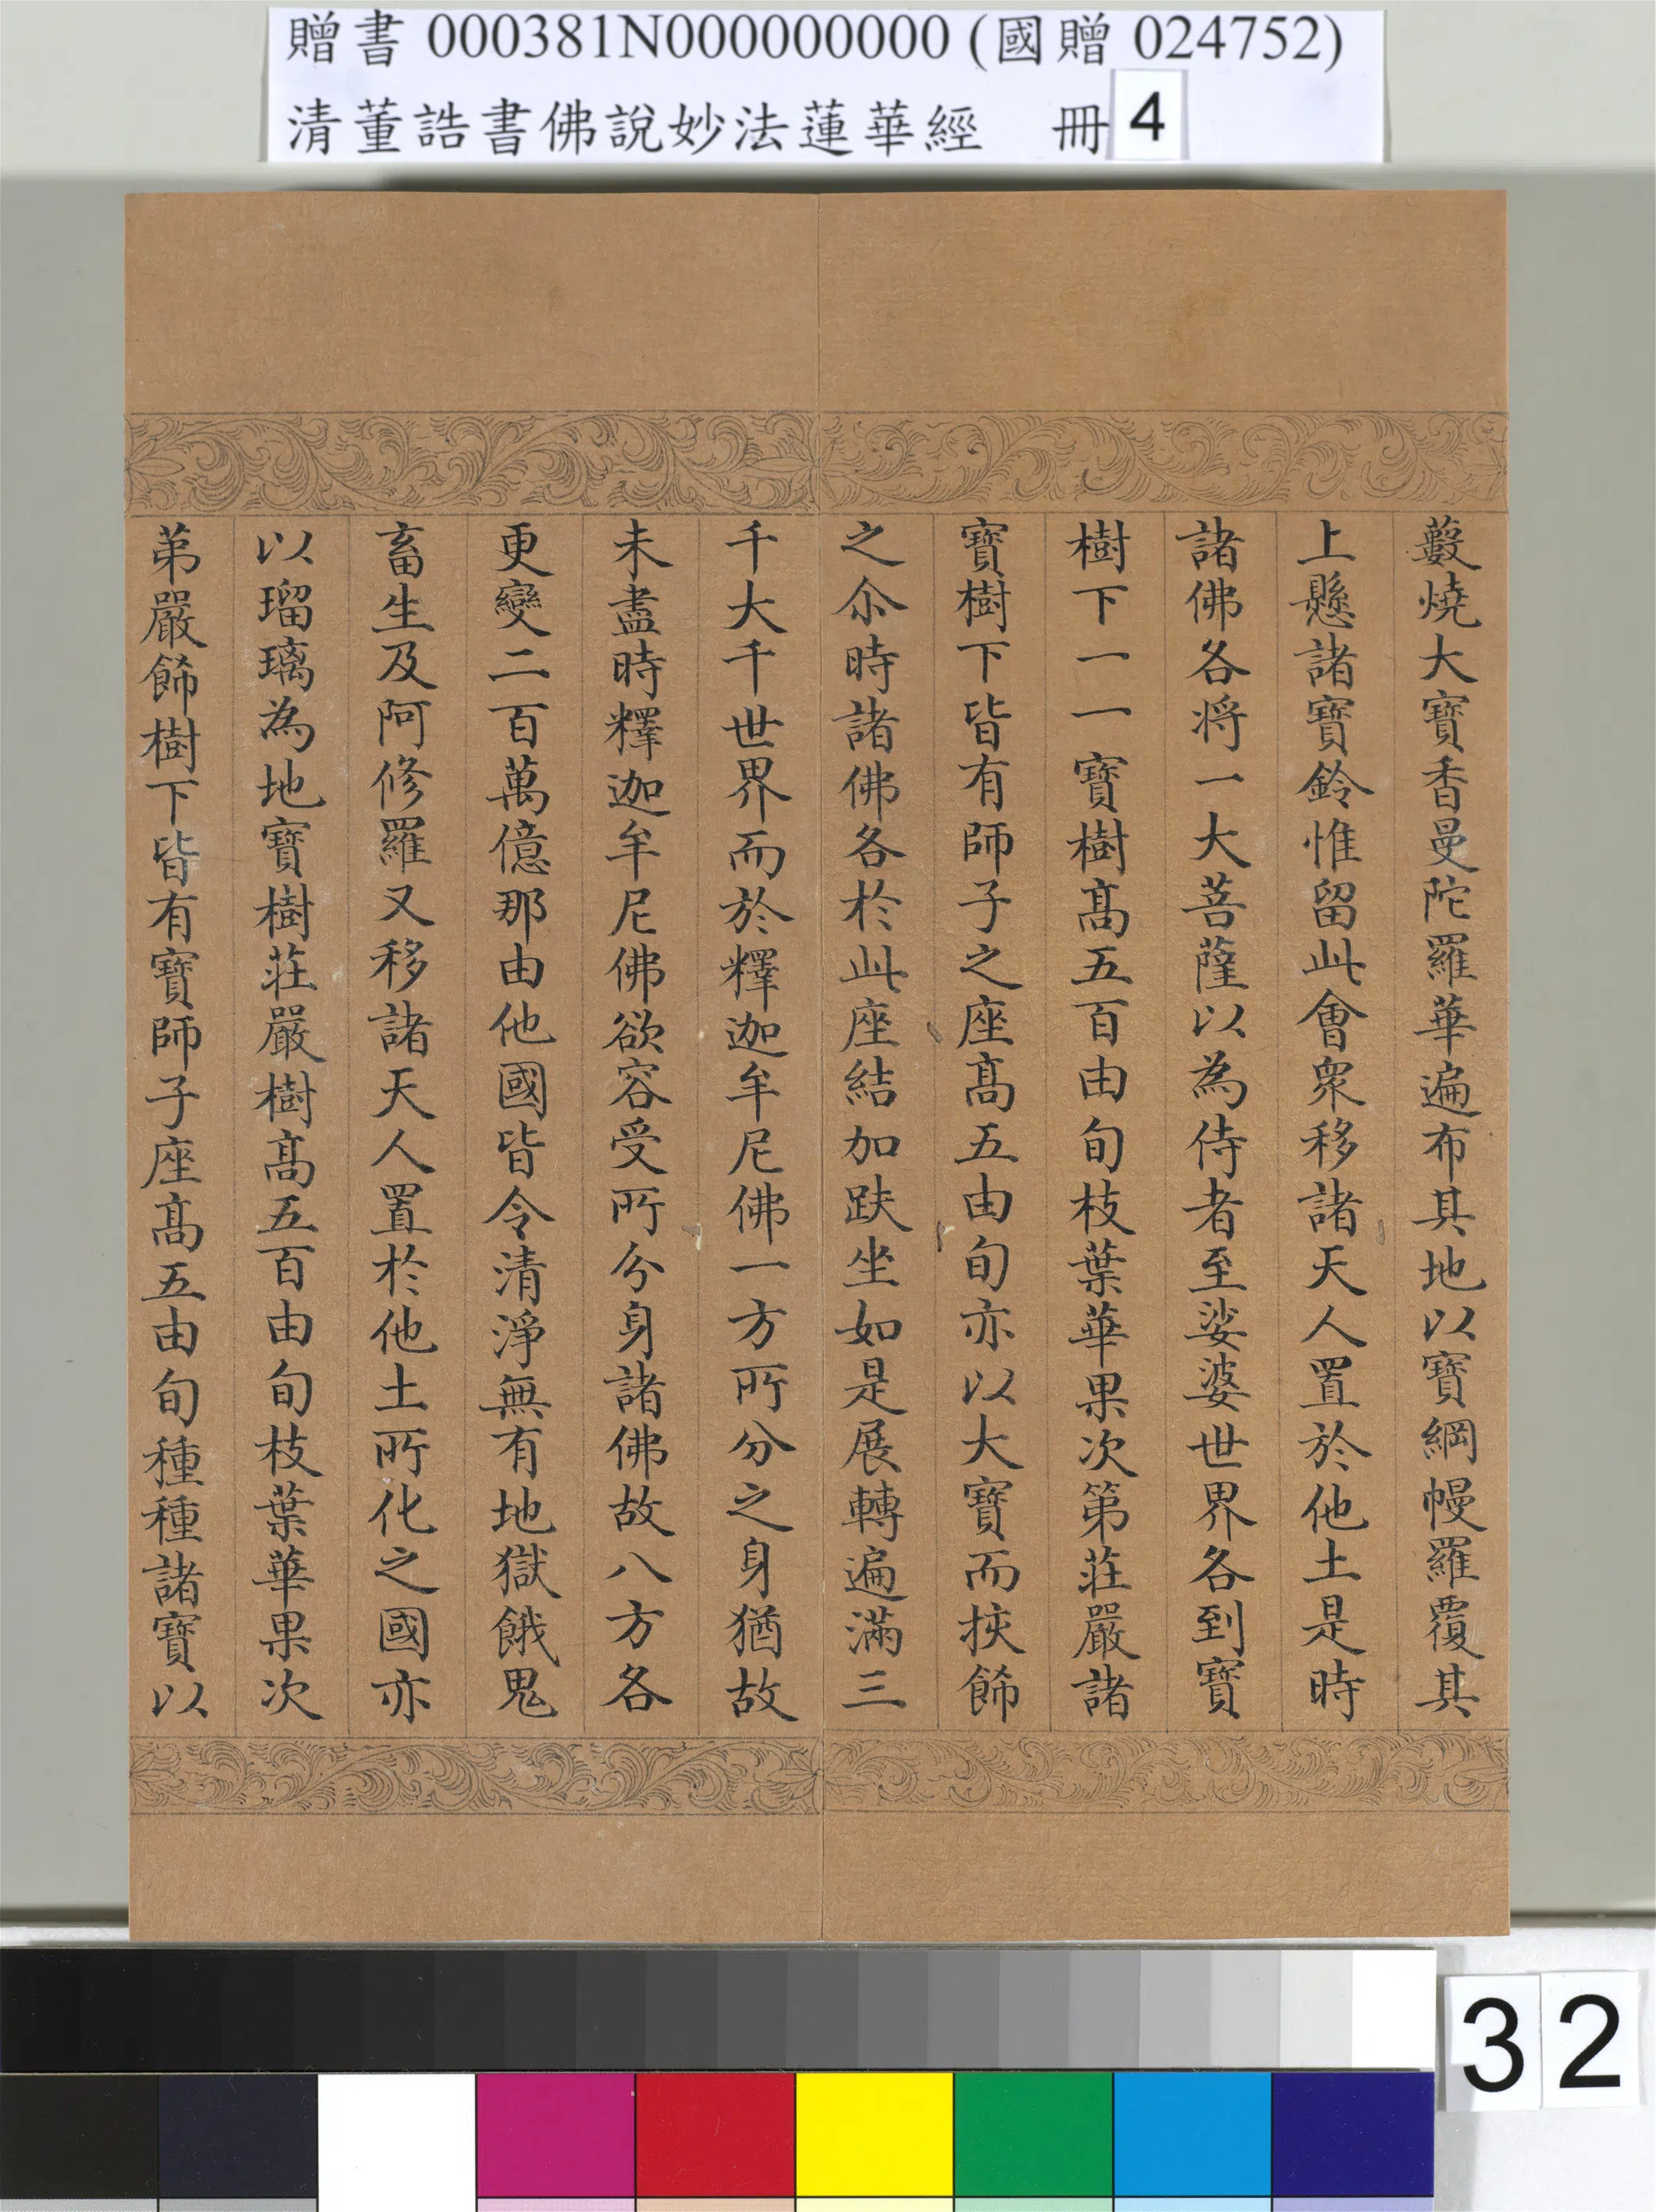 贈書 000381N000000000 (國贈 024752)
清董誥書佛說妙法蓮華經 冊 4
藪燒大寶香曼陀羅華遍布其地以寶綱幔羅覆其
上懸諸寶鈴惟留此會衆移諸天人置於他土是時
諸佛各將一大菩薩以為侍者至娑婆世界各到寶
樹下一一寶樹髙五百由旬枝葉華果次第莊嚴諸
寶樹下皆有師子之座髙五由旬亦以大寶而挍飾
之尒時諸佛各於此座結加趺坐如是展轉遍滿三
千大千世界而於釋迦牟尼佛一方所分之身猶故
未盡時釋迦牟尼佛欲容受所分身諸佛故八方各
更變二百萬億那由他國皆令清淨無有地獄餓鬼
畜生及阿修羅又移諸天人置於他土所化之國亦
以瑠璃為地寶樹莊嚴樹髙五百由旬枝葉華果次
苐嚴飾樹下皆有寶師子座髙五由旬種種諸寶以
32